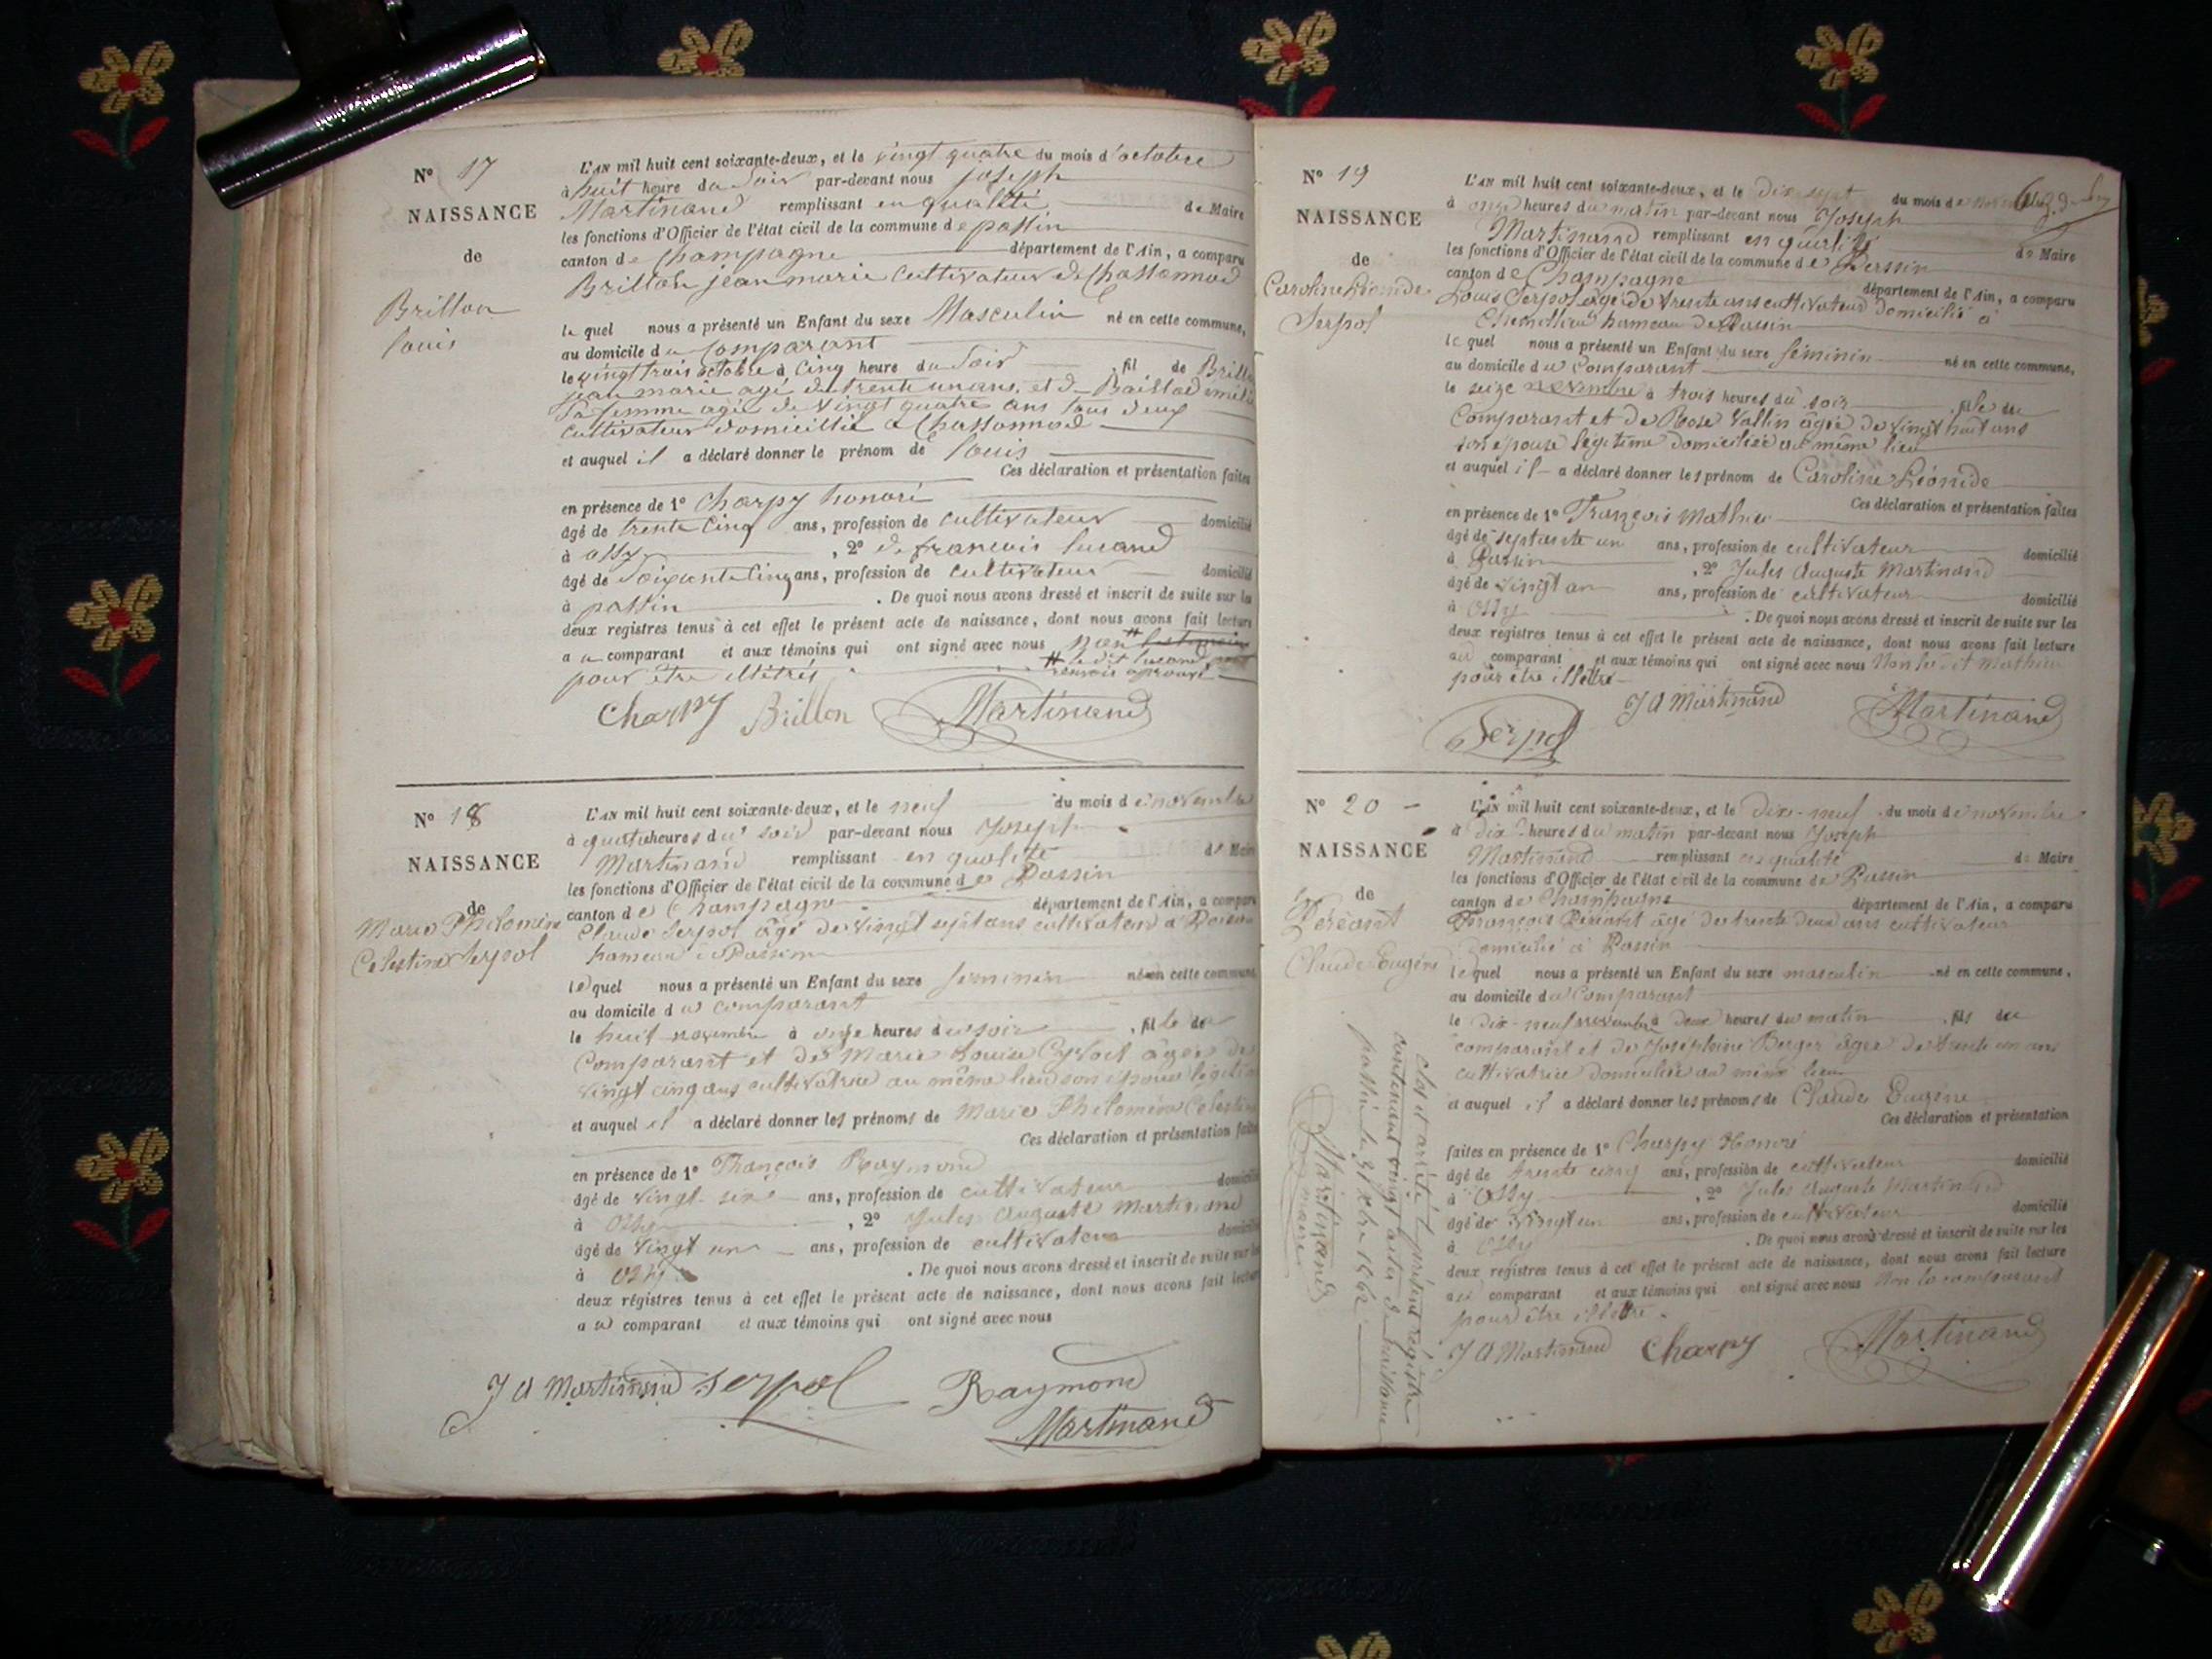 N° 17
NAISSANCE
de
Brillon
Louis
L'AN mil huit cent soixante-deux, et le vingt quatre du mois d'octobre
à huit heure du Soir par-devant nous joseph
Martinand remplissant en qualité de Maire
les fonctions d'Officier de l'état civil de la commune de passin
canton de Champagne département de l'Ain, a comparu
Brillon jean marie Cultivateur de Chassonnod
le quel nous a présenté un Enfant du sexe Masculin né en cette commune,
au domicile du Comparant
le vingt trois octobre à Cinq heure du Soir, fil de Brillon
jean marie agé de trente un ans, et de
Sa femme agée de Vingt quatre ans tous deux
Cultivateur domicillié a Chassonnod
et auquel il a déclaré donner le prénom de Louis
Ces déclaration et présentation faites
en présence de 1° Charpy honoré
âgé de trente Cinq ans, profession de Cultivateur domicilié
à ossy, 2° de francois lucand
âgé de Soixante Cinq ans, profession de Cultivateur domicilié
à passin. De quoi nous avons dressé et inscrit de suite sur les
deux registres tenus à cet effet le présent acte de naissance, dont nous avons fait lecture
au comparant et aux témoins qui ont signé avec nous non
# le dit lucand
pour être illétré
renvoi aprouvé
Charpy Brillon Martinand
N° 18
NAISSANCE
de
Marie Philomène
Celestine Serpol
L'AN mil huit cent soixante-deux, et le neuf du mois de novembre
à quatre heures du soir par-devant nous Joseph
Martinand remplissant en qualité de Maire
les fonctions d'Officier de l'état civil de la commune de Passin
canton de Champagne département de l'Ain, a comparu
Claude Serpol âgé de vingt sept ans cultivateur à
hameau de Passin
lequel nous a présenté un Enfant du sexe féminin né en cette commune
au domicile du comparant
le huit novembre à onze heures du soir, fille du
Comparant et de Marie Louise âgée de
vingt cinq ans cultivatrice au même lieu son épouse légitime
et auquel il a déclaré donner les prénoms de Marie Philomène Celestine
Ces déclaration et présentation faites
en présence de 1° François Raymond
âgé de vingt six ans, profession de cultivateur domicilié
à Ossy, 2° Jules Auguste Martinand
âgé de vingt un ans, profession de cultivateur domicilié
à Ossy. De quoi nous avons dressé et inscrit de suite sur les
deux régistres tenus à cet effet le présent acte de naissance, dont nous avons fait lecture
au comparant et aux témoins qui ont signé avec nous
J A Martinand Serpol Raymond
Martinand
N° 19
NAISSANCE
de
Caroline Léonide
Serpol
L'AN mil huit cent soixante-deux, et le dix sept du mois de
à onze heures du matin par-devant nous Joseph
Martinand remplissant en qualité de Maire
les fonctions d'Officier de l'état civil de la commune de Passin
canton de Champagne département de l'Ain, a comparu
Louis Serpol âgé de trente ans cultivateur domicilié à
hameau de Passin
le quel nous a présenté un Enfant du sexe féminin né en cette commune,
au domicile du Comparant
le seize novembre à trois heures du soir, fille du
Comparant et de Rose Vallin âgée de vingt huit ans
son épouse légitime domiciliée au même lieu
et auquel il a déclaré donner les prénom de Caroline Léonide
Ces déclaration et présentation faites
en présence de 1° François Mathieu
âgé de septante un ans, profession de cultivateur domicilié
à Passin, 2° Jules Auguste Martinand
âgé de vingt un ans, profession de cultivateur domicilié
à Ossy. De quoi nous avons dressé et inscrit de suite sur les
deux registres tenus à cet effet le présent acte de naissance, dont nous avons fait lecture
au comparant et aux témoins qui ont signé avec nous Non le dit Mathieu
pour être illettré
Serpol J A Martinand Martinand
N° 20
NAISSANCE
de
Claude Eugène
L'AN mil huit cent soixante-deux, et le dix-neuf du mois de novembre
à dix heures du matin par-devant nous Joseph
Martinand remplissant en qualité de Maire
les fonctions d'Officier de l'état civil de la commune de Passin
canton de Champagne département de l'Ain, a comparu
François âgé de trente deux ans cultivateur
domicilié à Passin
lequel nous a présenté un Enfant du sexe masculin né en cette commune,
au domicile du Comparant
le dix-neuf novembre à deux heures du matin, fils du
comparant et de Joséphine Berger âgée de trente un ans
cultivatrice domiciliée au même lieu
et auquel il a déclaré donner les prénoms de Claude Eugène
Ces déclaration et présentation
faites en présence de 1° Charpy Honoré
âgé de trente cinq ans, profession de cultivateur domicilié
à Ossy, 2° Jules Auguste Martinand
âgé de vingt un ans, profession de cultivateur domicilié
à Ossy. De quoi nous avons dressé et inscrit de suite sur les
deux registres tenus à cet effet le présent acte de naissance, dont nous avons fait lecture
au comparant et aux témoins qui ont signé avec nous Non le comparant
pour être illettré.
J A Martinand Charpy Martinand
clos et arrêté le présent régistre
contenant vingt actes de naissance
passin le 31 Xbre 1862
Martinand
maire